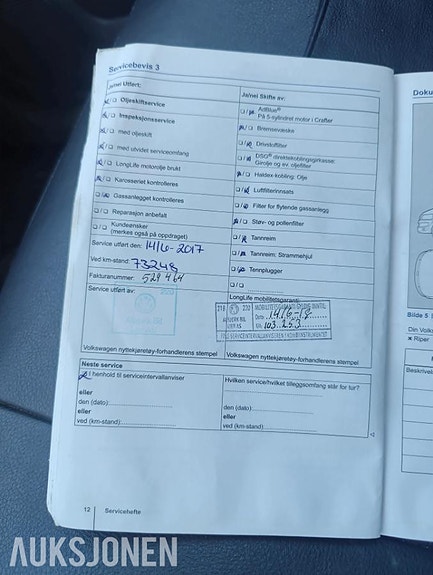 Servicebevis 3
Ja/nei Utført:
Oljeskiftservice
Inspeksjonsservice
med oljeskift
med utvidet serviceomfang
LongLife motorolje brukt
Karosseriet kontrolleres
Gassanlegget kontrolleres
Reparasjon anbefalt
Kundeønsker
(merkes også på oppdraget)
Service utført den: 14/6-2017
Ved km-stand: 73248
Fakturanummer: 529464
Service utført av:
Volkswagen nyttekjøretøy-forhandlerens stempel
Ja/nei Skifte av:
AdBlue®
På 5-sylindret motor i Crafter
Bremsevæske
Drivstoffilter
DSG® direktekoblingsgirkasse:
Girolje og ev. oljefilter
Haldex-kobling: Olje
Luftfilterinnsats
Filter for flytende gassanlegg
Støv- og pollenfilter
Tannreim
Tannreim: Strammehjul
Tennplugger
LongLife mobilitetsgaranti
218 230
MOBILITETSGARANTI GYLDIG INNTIL
Dato 14/6-18
Km. 103.253
Volkswagen nyttekjøretøy-forhandlerens stempel
Neste service
I henhold til serviceintervallanviser
eller
den (dato):
eller
ved (km-stand):
Hvilken service/hvilket tilleggsomfang står for tur?
den (dato):
eller
ved (km-stand):
12 Servicehefte
Doku
Bilde 5
Din Volks
× Riper
Beskrivels
AUKSJONEN